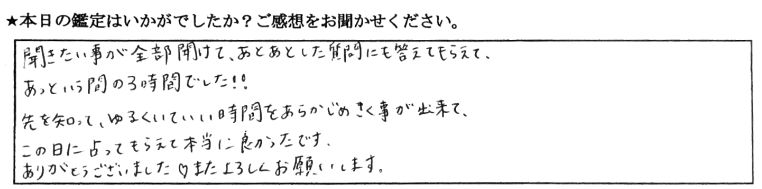 ★本日の鑑定はいかがでしたか？ご感想をお聞かせください。
聞きたい事が全部聞けて、あとあとした質問にも答えてもらえて、
あっという間の3時間でした!!
先を知って、ゆるくいていい時間をあらかじめきく事が出来て、
この日に占ってもらえて本当に良かったです。
ありがとうございました♡またよろしくお願いします。